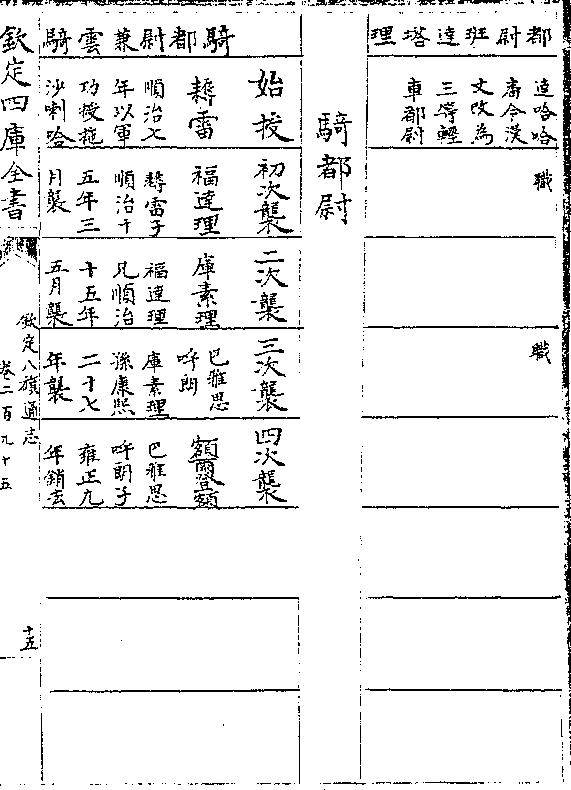 都尉班達塔理
達哈哈
番今漢
文改為
三等輕
車都尉
職
職
騎都尉
騎都尉兼雲騎
始授
耨雷
順治七
年以軍
功授拖
沙喇哈
初次襲
福達理
耨雷子
順治十
五年三
月襲
二次襲
庫素理
福達理
兄順治
十五年
五月襲
三次襲
巴雅思
呼朗
庫素理
孫康熙
二十七
年襲
四次襲
額爾登額
巴雅思
呼朗子
雍正九
年銷去
欽定四庫全書
欽定八旗通志
卷二百九十五
十五